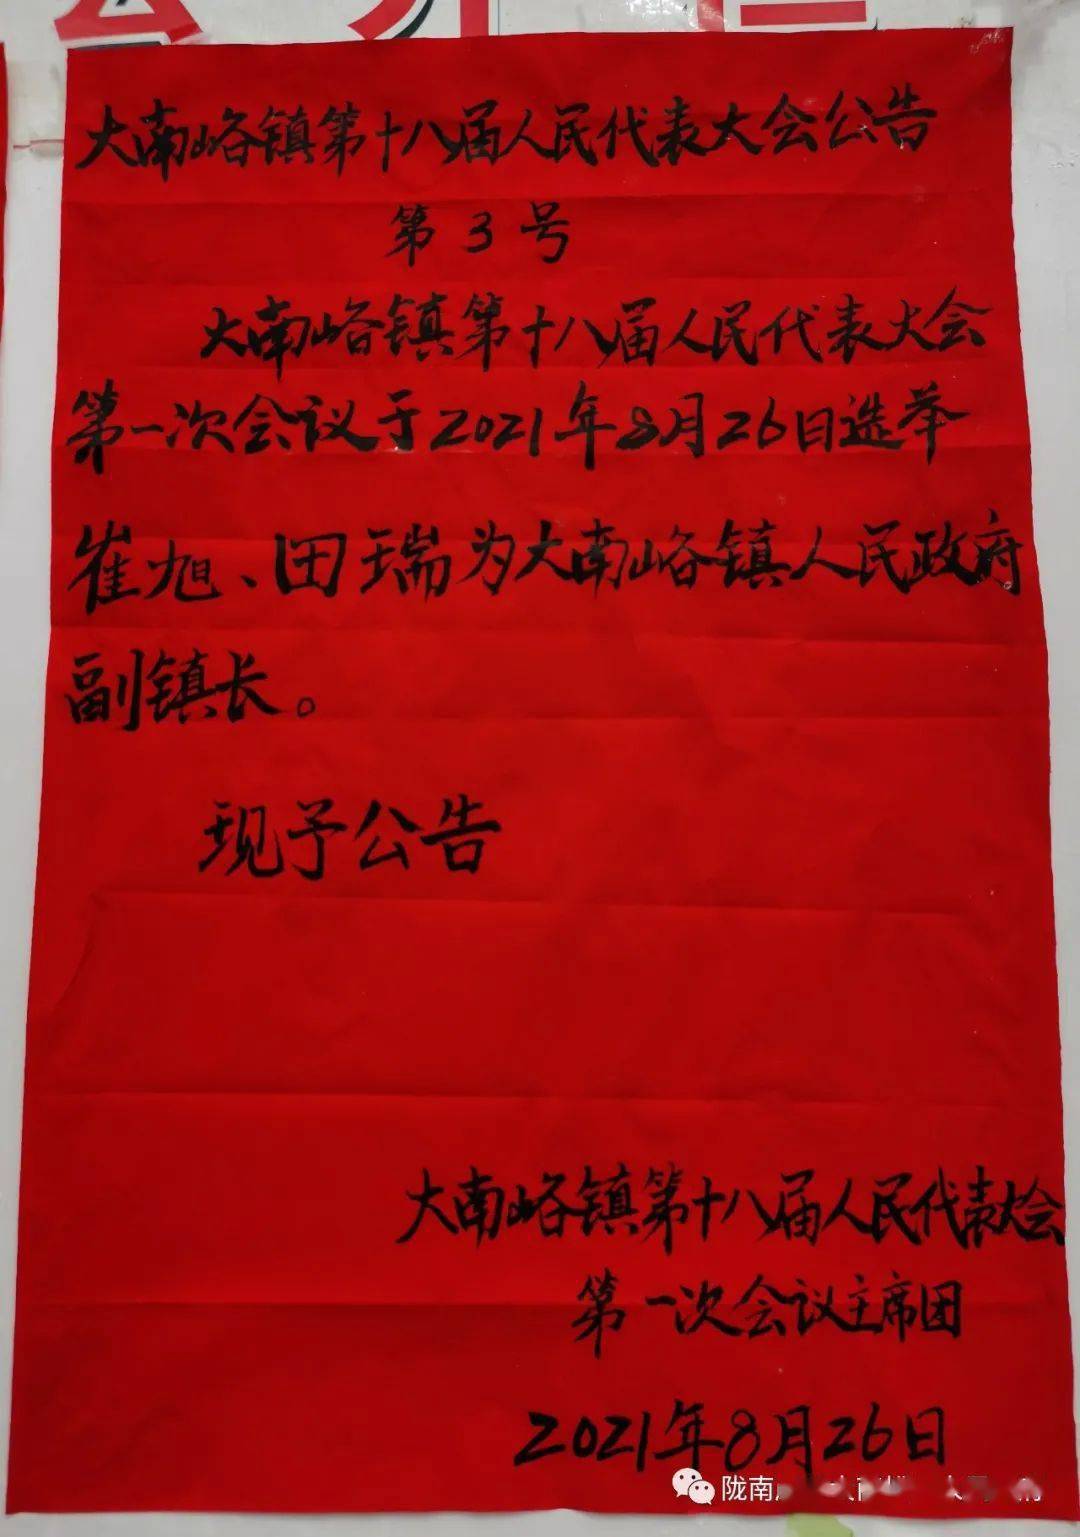 大南峪镇第十八届人民代表大会公告
第3号
大南峪镇第十八届人民代表大会
第一次会议于2021年8月26日选举
崔旭、田瑞为大南峪镇人民政府
副镇长。
现予公告
大南峪镇第十八届人民代表大会
第一次会议主席团
2021年8月26日
陇南